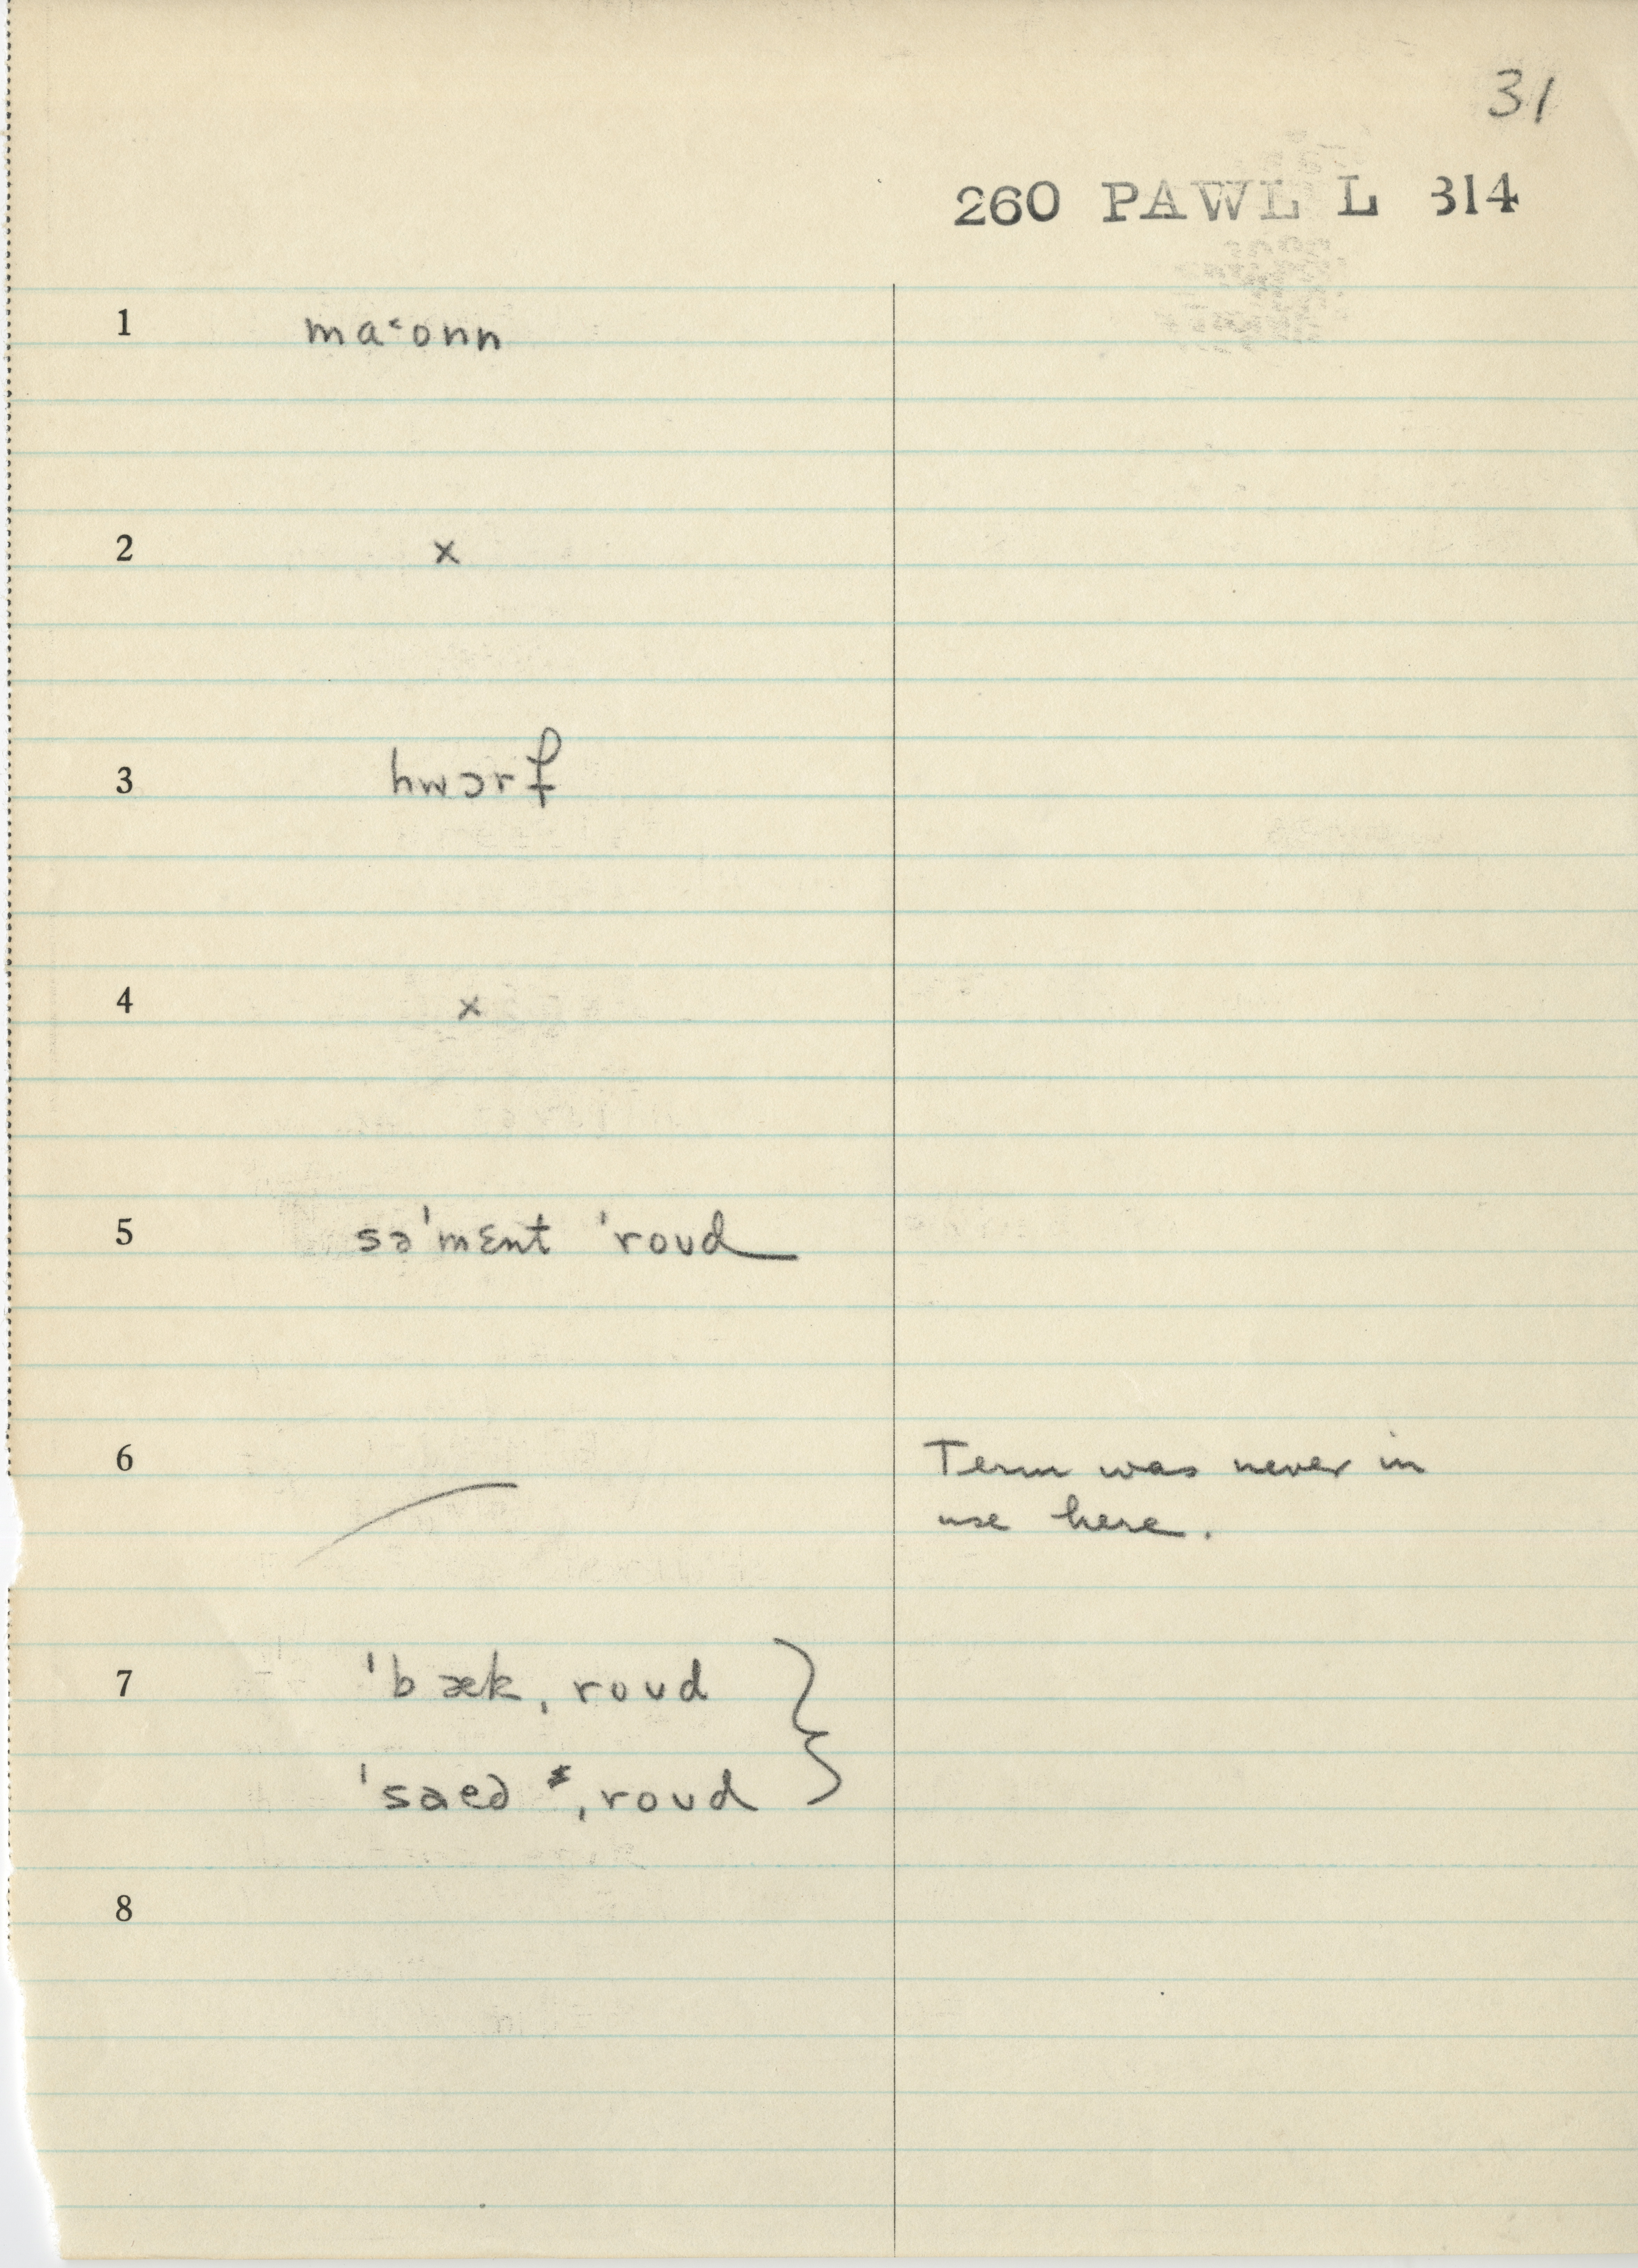 31
260 PAWL L 314
1 maˑonn
2 x
3 hwɔrf
4 x
5 sə'mɛnt 'roʊd
6 Term was never in
use here.
7 'bæk ˌroʊd
'saed ˌroʊd
8